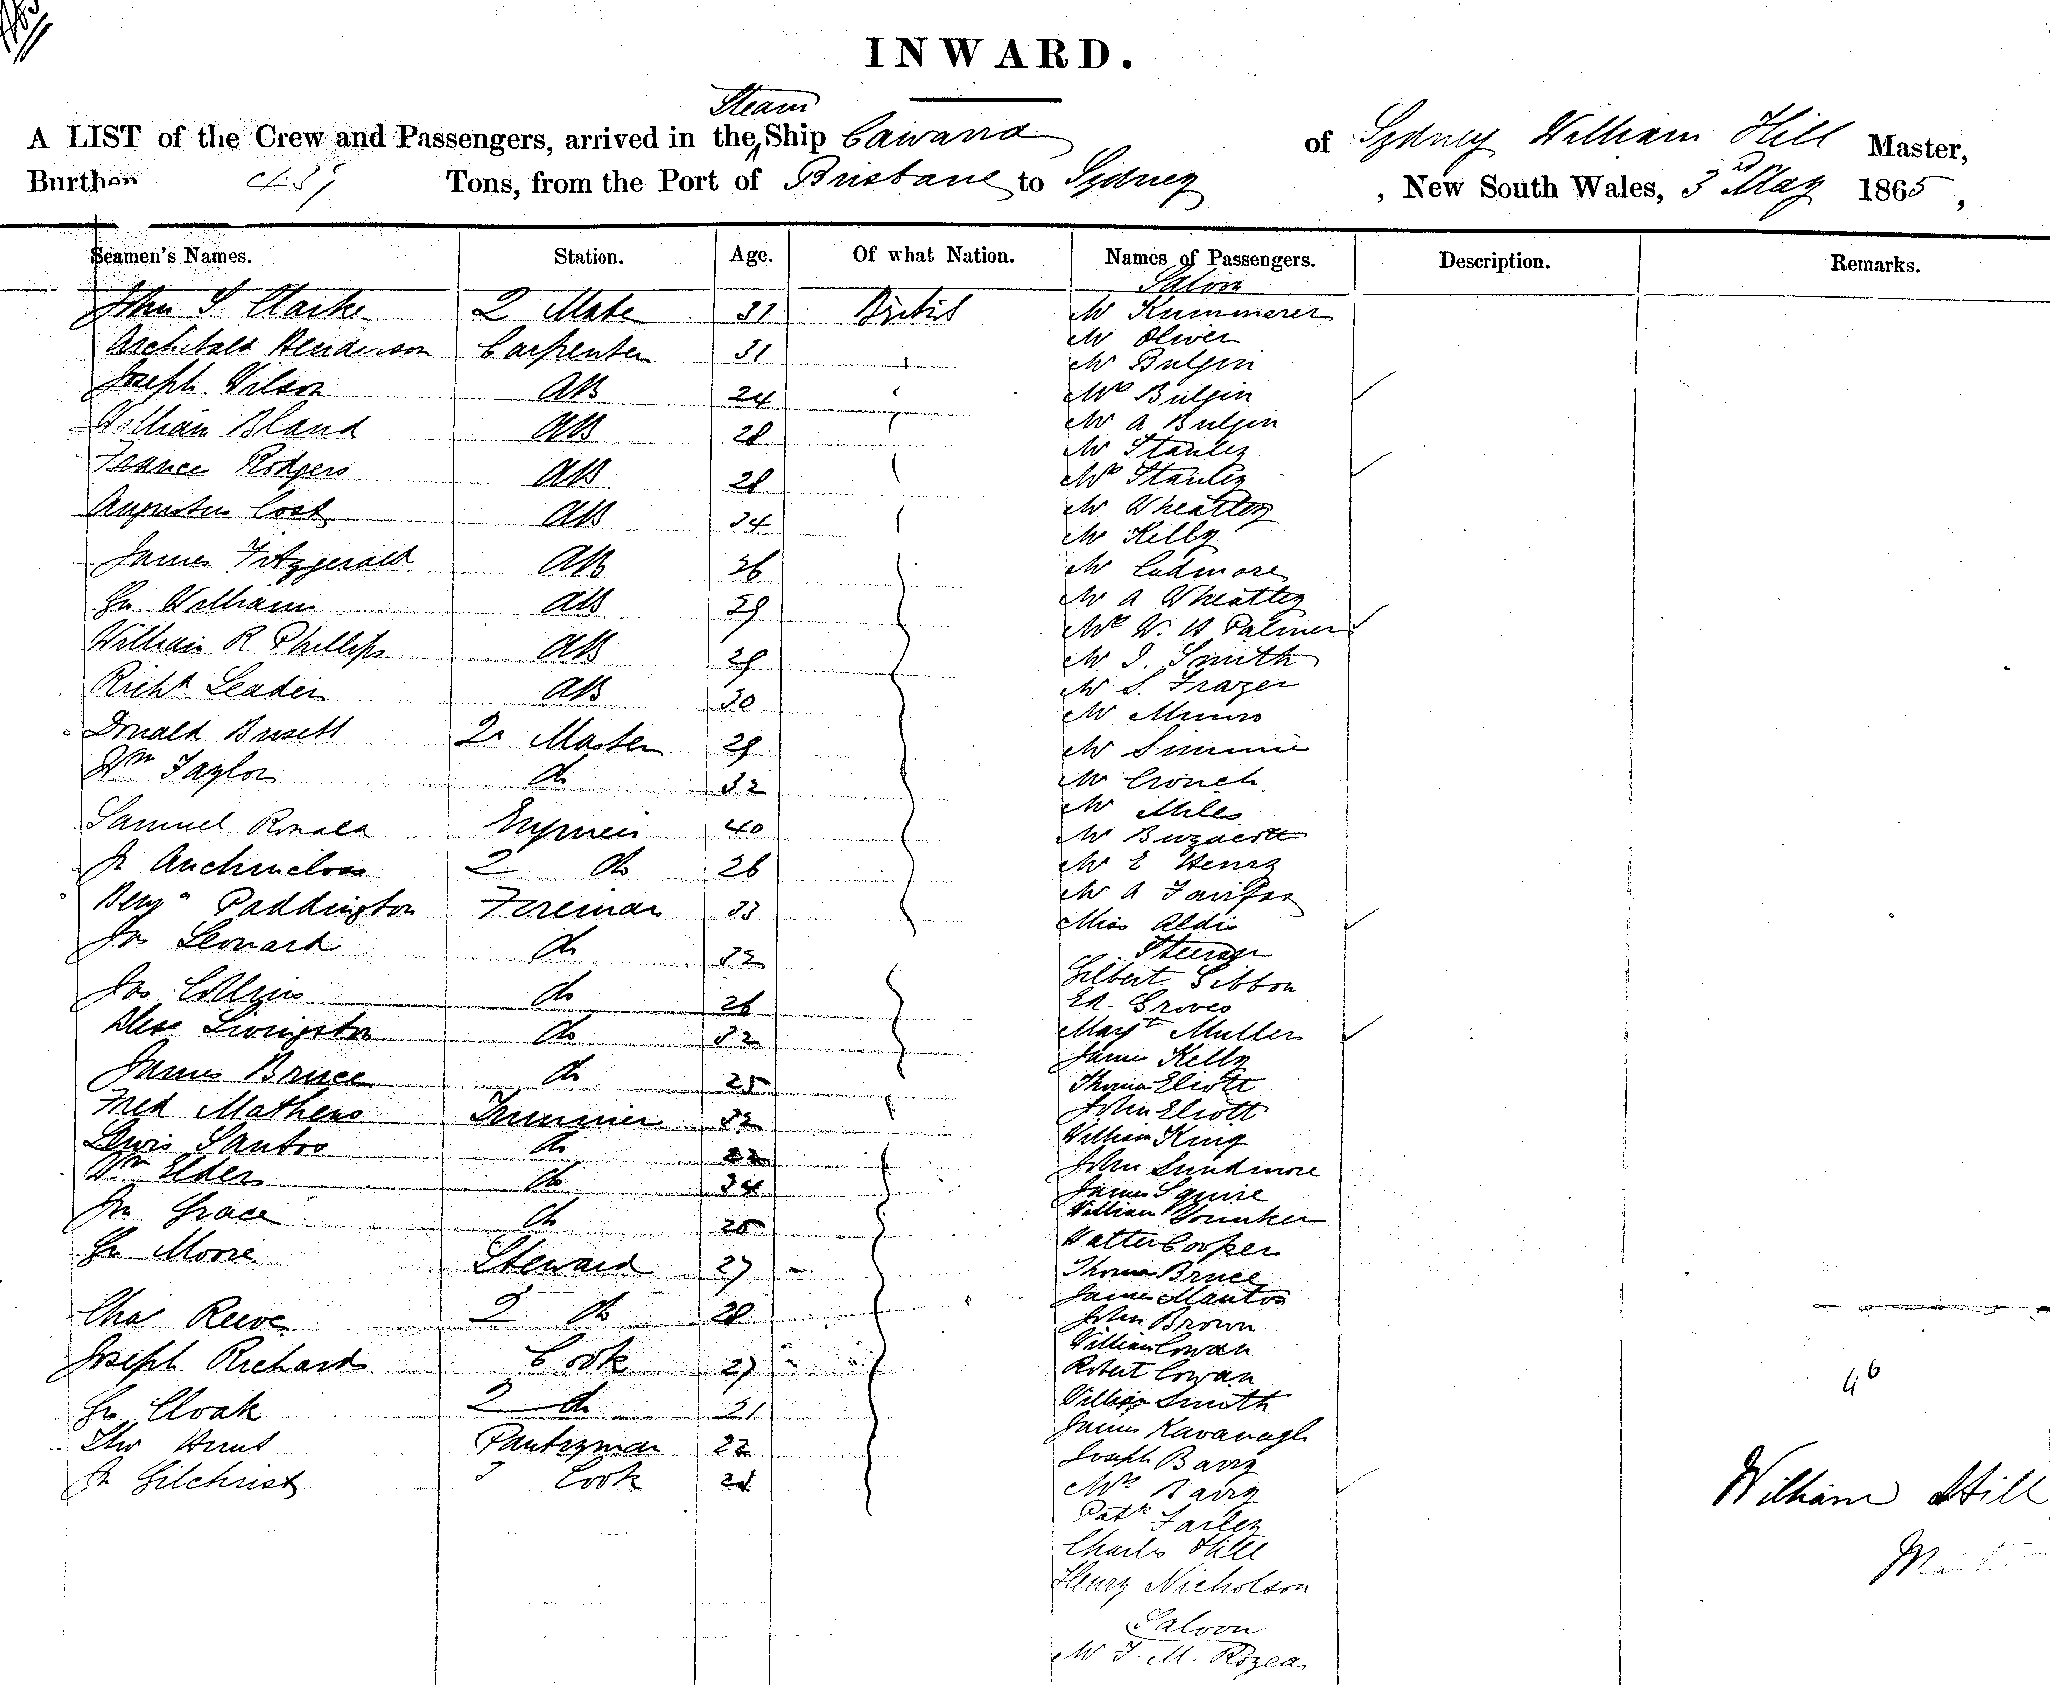 INWARD.
Steam
A LIST of the Crew and Passengers, arrived in the Ship Cawarra of Sydney William Hill Master,
Burthen 439 Tons, from the Port of Brisbane to Sydney, New South Wales, 3rd May 1865,
Seamen's Names. Station. Age. Of what Nation. Names of Passengers. Description. Remarks.
Saloon
John S Clarke 2 Mate 31 British Mr Kummerer
Mr Oliver
Archibald Henderson Carpenter 31 Mr Bulgin
Joseph Wilson AB 24 Mrs Bulgin
William Bland AB 28 Mr A Bulgin
Mr Stanley
France Rodgers AB 28 Mrs Stanley
Augustus Cost AB 34 Mr Wheatley
Mr Kelly
James Fitzgerald AB 26 Mr Cudmore
Jn Williams AB 29 Mr A Wheatley
Mrs W. H Palmer
William R Phillips AB 29 Mr J. Smith
Richd Leader AB 30 Mr S. Frazer
Mr Munro
Donald Bissett Qr Master 29 Mr Simmie
Wm Taylor do 32 Mr Crouch
Mr Miles
Samuel Ronald Engineer 40 Mr Buzacott
Jn Auchincloss 2 do 26 Mr E Henry
Benjn Paddington Foreman 33 Mr A Fairfax
Miss Aldis
Jas Leonard do 32 Steerage
Gilbert Gibbon
Jas Collins do 26 Ed. Groves
Alexr Livingston do 32 Margt Muller
James Kelly
James Bruce do 25 Thomas Eliott
Fred Mathews Trimmer 32 John Eliott
Lewis Santos do 22 William King
Wm Elder do 34 John Lundmore
James Squire
Jn Grace do 25 William Younker
Jn Moore Steward 27 Walter Cooper
Thomas Bruce
James Mantos
Chas Reeve 2 do 28 John Brown
William Cowan
Joseph Richards Cook 27 Robert Cowan
46
Jn Cloak 2 do 21 William Smith
James Kavanagh
Thos Hunt Pantryman 22 Joseph Barry
Jn Gilchrist 3 Cook 21 Mrs Barry
William Hill
Patk Farley
Charles Hill
Henry Nicholson
Saloon
Mr F. M. Rozea